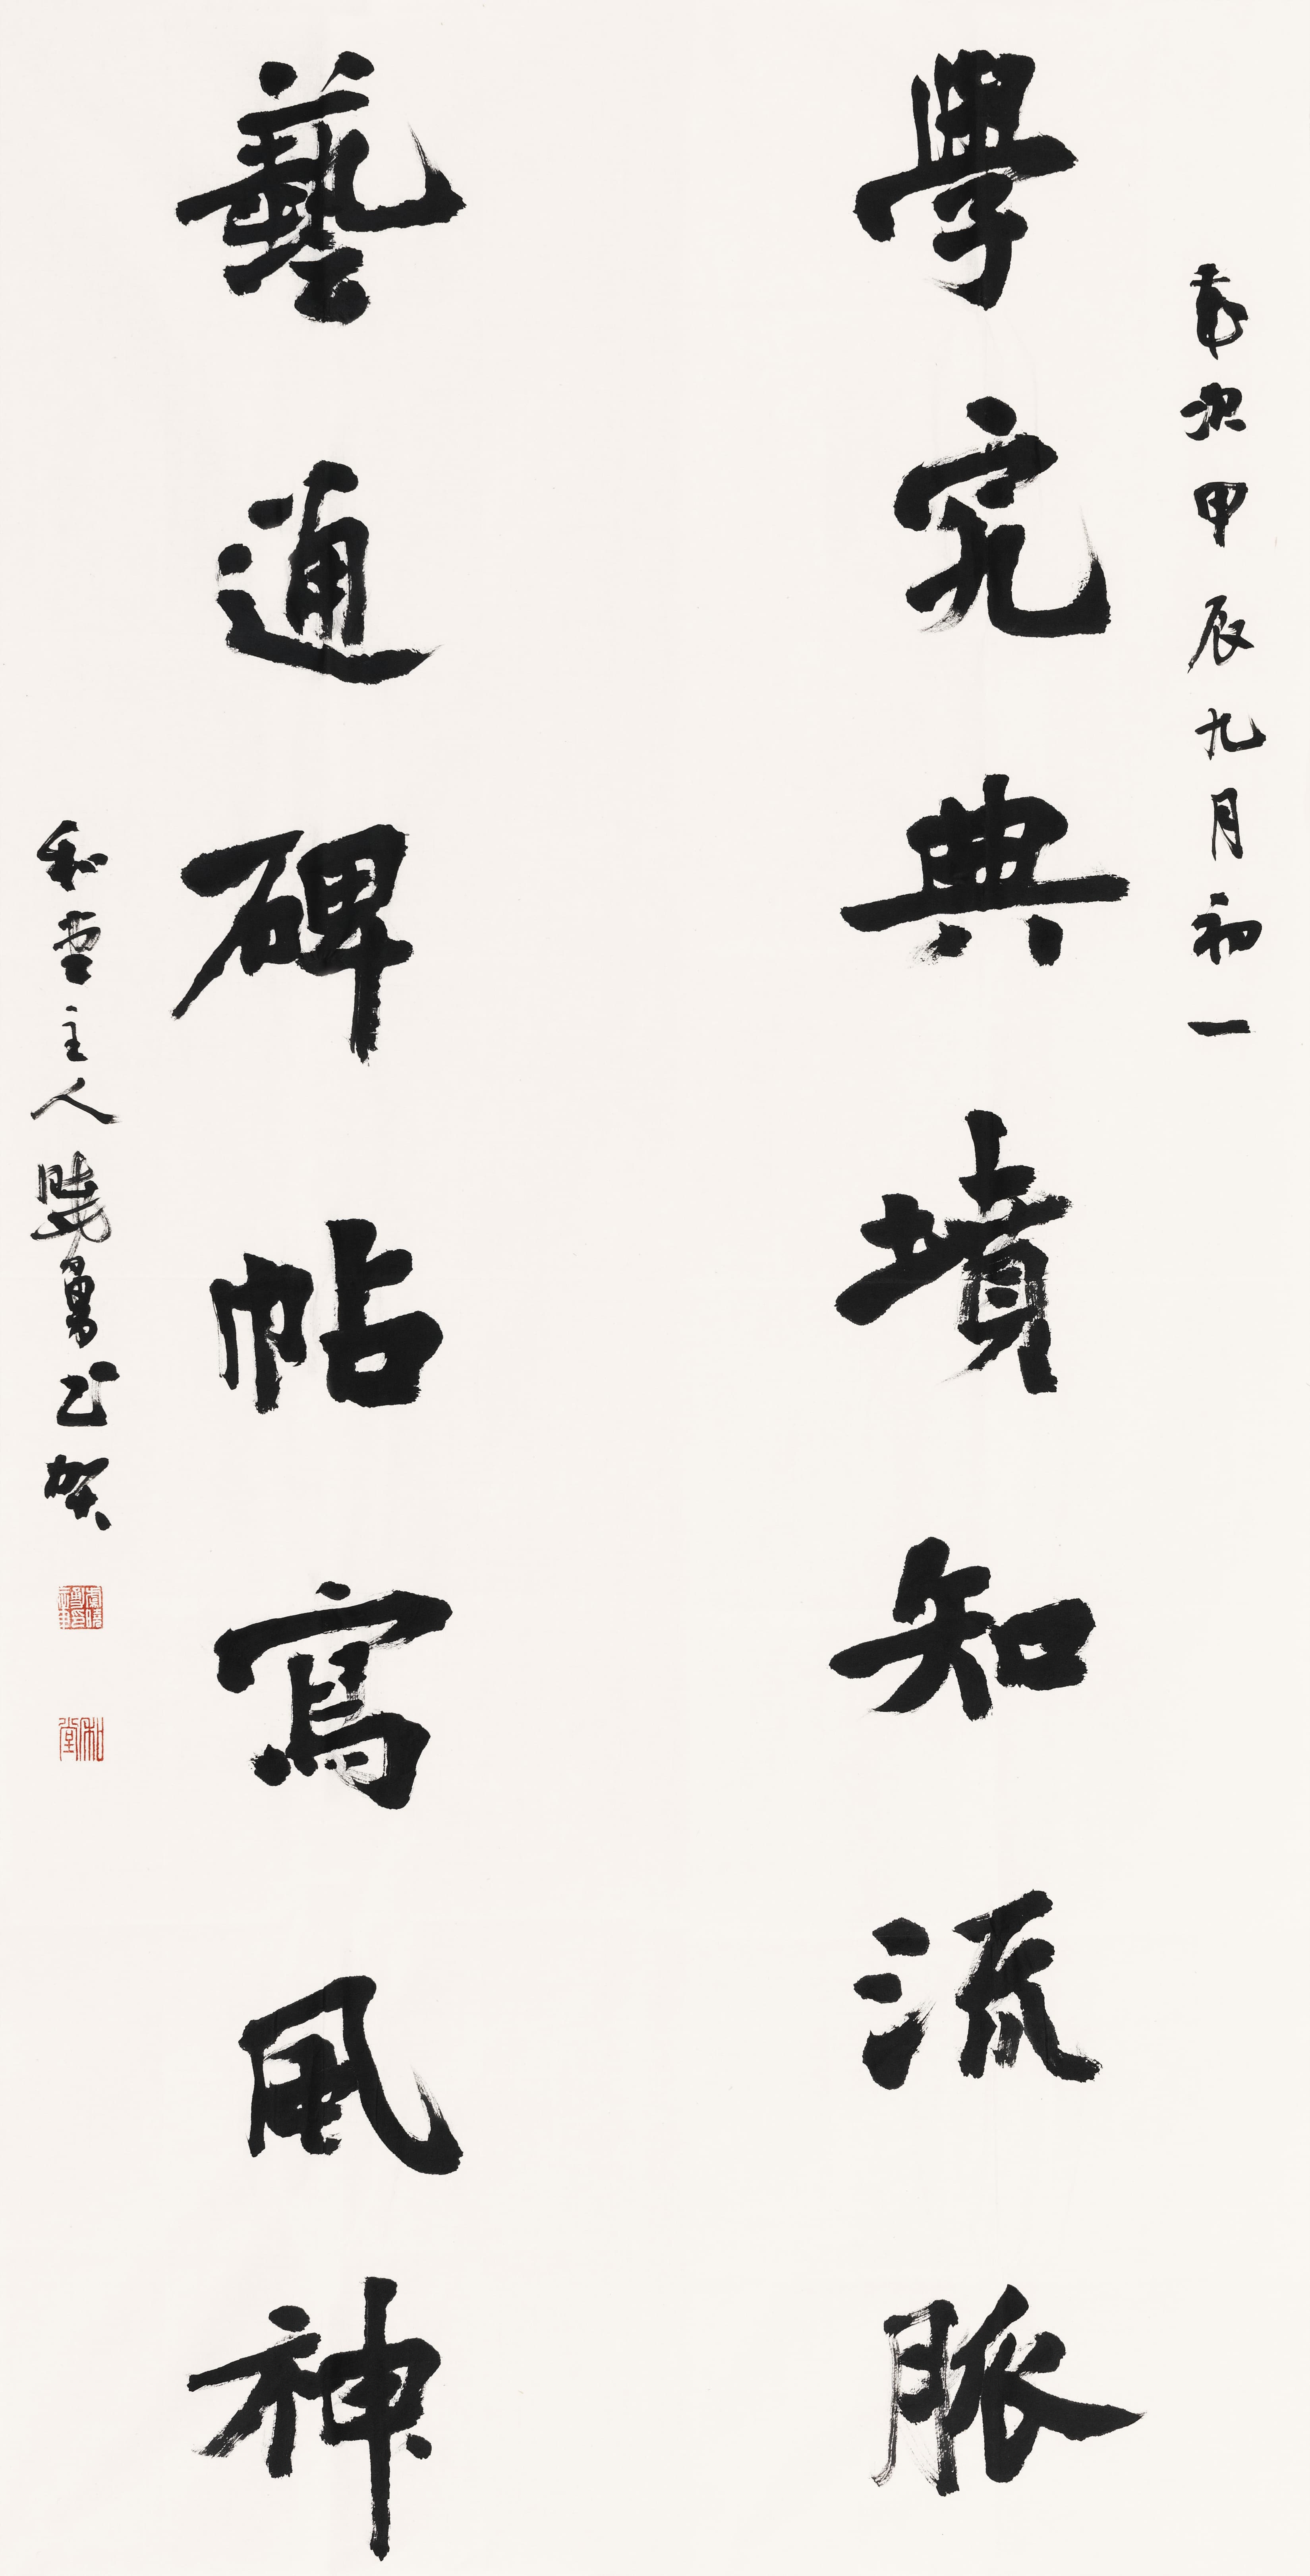 歲次甲辰九月初一
學究典墳知流脈
藝通碑帖寫風神
和堂主人曉勇書賀
和堂